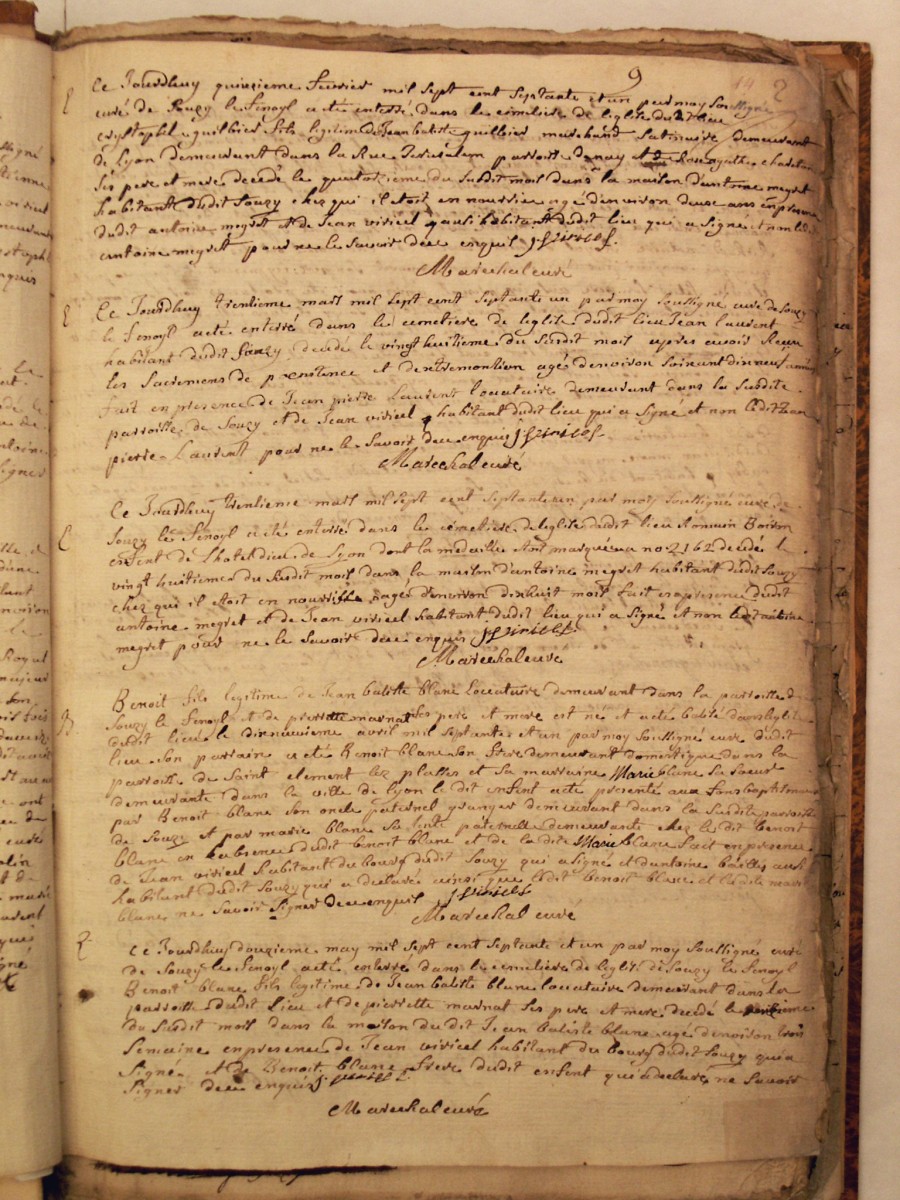 9
19 2
E Ce Jourdhuy quinzieme fevrier mil sept cent septante et un par moy soussigné
curé de Souzy le Fenoyl a eté enterré dans le cimitiere de leglise dudit lieu
guilbier fils legitime de Jean batiste guilbier marchand demeurant
de Lyon demeurant dans la Rue Jerusalem parroisse denay et de agathe
ses pere et mere decedé le quatorzieme du susdit mois dans la maison dantoine megret
habitant dudit Souzy chez qui il etoit en nourrice agé denviron deux ans en presence
dudit antoine megret et de Jean viricel aussi habitant dudit lieu qui a signé et non ledit
antoine megret pour ne le savoir de ce enquis J viricel
Marechal curé
E Ce Jourdhuy trentieme mars mil sept cent septante un par moy soussigné curé de Souzy
le Fenoyl a eté enterré dans le cemetiere de leglise dudit lieu Jean laurent
habitant dudit Souzy decedé le vingt huitieme du susdit mois apres avoir Receu
les sacremens de penitence et dextremontien agés denviron soixant dixneuf années
fait en presence de Jean pierre Laurent locataire demeurant dans la susdite
parroisse de Souzy et de Jean viricel habitant dudit lieu qui a signé et non ledit Jean
pierre Laurent pour ne le savoir de ce enquis J viricel
Marechal curé
E Ce Jourdhuy trentieme mars mil sept cent septante un par moy soussigné curé de
Souzy le Fenoyl a eté enterré dans le cimetiere de leglise dudit lieu Romain
enfent de Lhotel dieu de Lyon dont la medaille etoit marquée au no 2162 decedé le
vingt huitieme du susdit mois dans la maison dantoine megret habitant dudit Souzy
chez qui il etoit en nourrisse agés denviron dixhuit mois fait en presence dudit
antoine megret et de Jean viricel habitant dudit lieu qui a signé et non ledit antoine
megret pour ne le savoir de ce enquis J viricel
Marechal curé
B Benoit fils legitime de Jean batiste blanc Locataire demeurant dans la parroisse de
Souzy le Fenoyl et de pierrette marnat ses pere et mere est né et a eté batisé dans leglise
dudit lieu le dixneuvieme avril mil septante et un par moy soussigné curé dudit
lieu son parrain a eté Benoit blanc son frere demeurant domestique dans la
parroisse de Saint clement les plasses et sa marraine Marie blanc sa soeur
demeurante dans la ville de Lyon le dit enfent a eté presenté aux fons baptismaux
par Benoit blanc son oncle paternel granger demeurant dans la susdite parroisse
de Souzy et par marie blanc sa tente paternelle demeurante chez le dit benoit
blanc en labsence dudit benoit blanc et de la dite Marie blanc fait en presence
de Jean viricel habitant du bourg dudit Souzy qui a signé et dantoine aussi
habitant dudit Souzy qui a declaré ainsi que ledit benoit blanc et la dite marie
blanc ne savoir signer de ce enquis J viricel
Marechal curé
E Ce Jourdhuy douzieme may mil sept cent septante et un par moy soussigné curé
de Souzy le Fenoyl a eté enterré dans le cemetiere de leglise de Souzy le Fenoyl
Benoit blanc fils legitime de Jean batiste blanc Locataire demeurant dans la
parroisse dudit lieu et de pierrette marnat ses pere et mere decedé le
du susdit mois dans la maison du dit Jean batiste blanc agé denviron trois
semaine en presence de Jean viricel habitant du bourg dudit Souzy qui a
signé et de Benoit blanc frere dudit enfent qui a declaré ne savoir
signer de ce enquis J viricel
Marechal curé